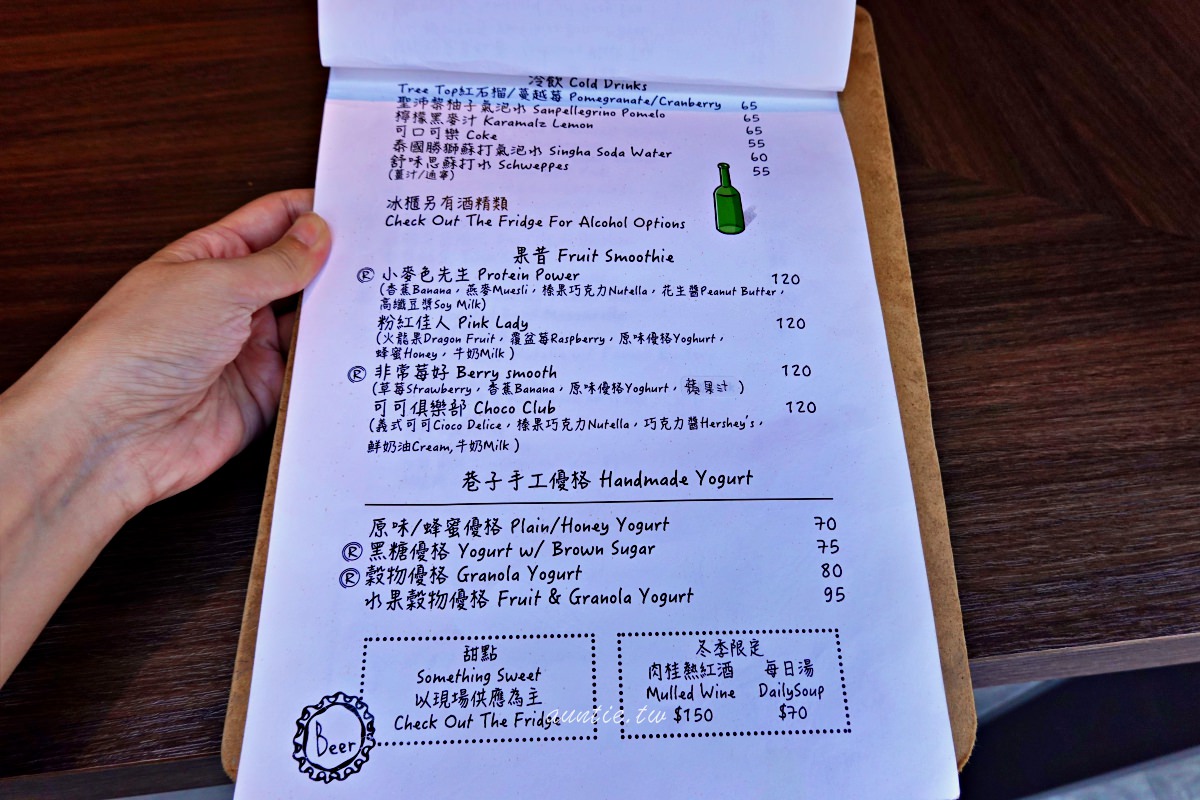 冷飲 Cold Drinks
Tree Top紅石榴/蔓越莓 Pomegranate/Cranberry 65
聖沛黎柚子氣泡水 Sanpellegrino Pomelo 65
檸檬黑麥汁 Karamalz Lemon 65
可口可樂 Coke 55
泰國勝獅蘇打氣泡水 Singha Soda Water 60
舒味思蘇打水 Schweppes 55
(薑汁/通寧)
冰櫃另有酒精類
Check Out The Fridge For Alcohol Options
果昔 Fruit Smoothie
Ⓡ 小麥色先生 Protein Power 120
(香蕉Banana，燕麥Muesli，榛果巧克力Nutella，花生醬Peanut Butter，
高纖豆漿Soy Milk)
粉紅佳人 Pink Lady 120
(火龍果Dragon Fruit，覆盆莓Raspberry，原味優格Yoghurt，
蜂蜜Honey，牛奶Milk )
Ⓡ 非常莓好 Berry smooth 120
(草莓Strawberry，香蕉Banana，原味優格Yoghurt，蘋果汁 )
可可俱樂部 Choco Club 120
(義式可可Cioco Delice，榛果巧克力Nutella，巧克力醬Hershey's，
鮮奶油Cream,牛奶Milk )
巷子手工優格 Handmade Yogurt
原味/蜂蜜優格 Plain/Honey Yogurt 70
Ⓡ 黑糖優格 Yogurt w/ Brown Sugar 75
Ⓡ 穀物優格 Granola Yogurt 80
水果穀物優格 Fruit & Granola Yogurt 95
甜點
Something Sweet
以現場供應為主
Check Out The Fridge
Beer
冬季限定
肉桂熱紅酒 每日湯
Mulled Wine DailySoup
$150 $70
auntie.tw